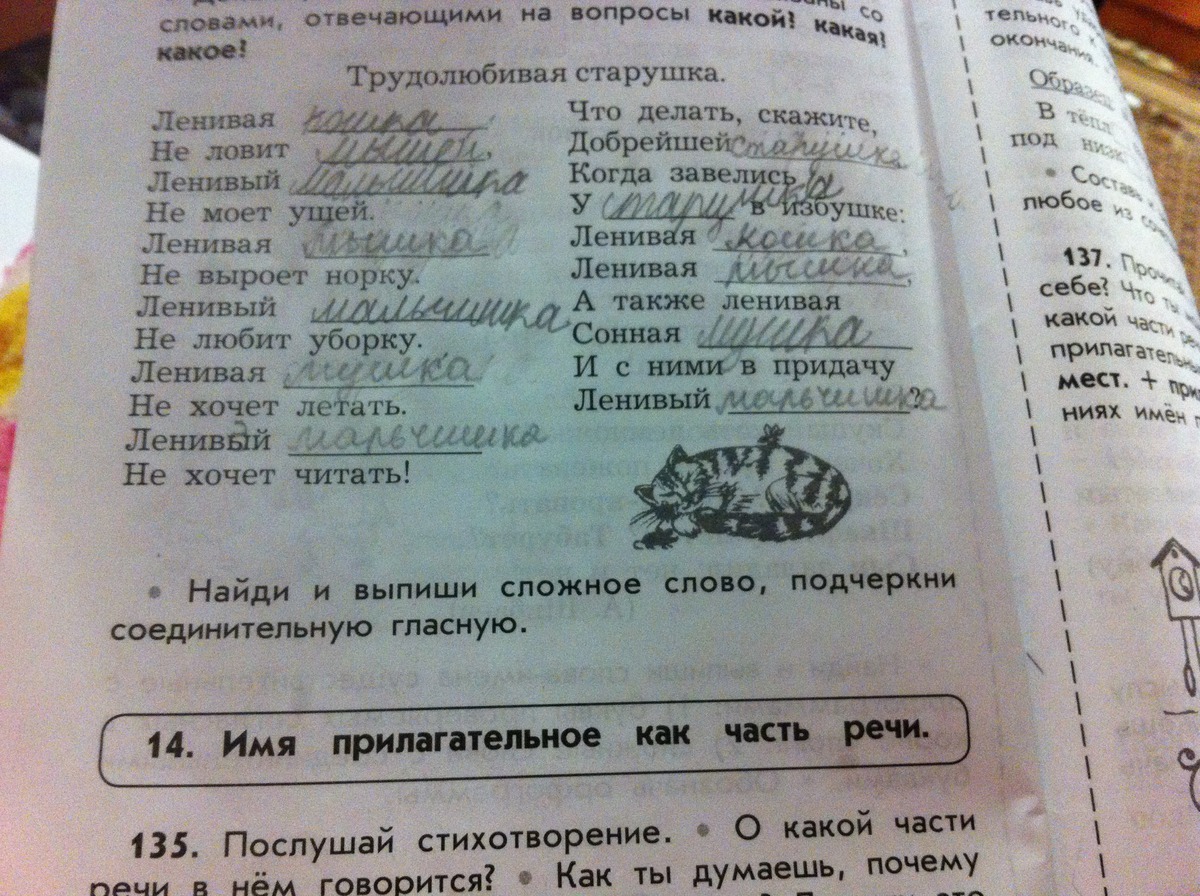 словами, отвечающими на вопросы какой? какая?
какое?
Трудолюбивая старушка.
Ленивая кошка
Не ловит мышей,
Ленивый мальчишка
Не моет ушей.
Ленивая мышка
Не выроет норку.
Ленивый мальчишка
Не любит уборку.
Ленивая мушка
Не хочет летать.
Ленивый мальчишка
Не хочет читать!
Что делать, скажите,
Добрейшей старушка
Когда завелись
У старушка в избушке:
Ленивая кошка,
Ленивая мышка,
А также ленивая
Сонная мушка
И с ними в придачу
Ленивый мальчишка?
• Найди и выпиши сложное слово, подчеркни
соединительную гласную.
14. Имя прилагательное как часть речи.
135. Послушай стихотворение. • О какой части
речи в нём говорится? • Как ты думаешь, почему
тельного к
окончания.
Образец
В тёпл
под низк
• Состав
любое из
137. Прочи
себе? Что ты
какой части ре
прилагательн
мест. + при
ниях имён п